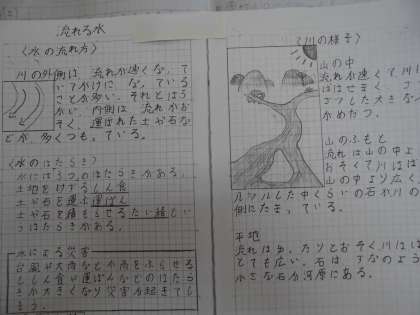 流れる水
〈水の流れ方〉
川の外側は、流れが速くな、て
いてがけにな、ている
ことが多い。それとはう
かい、内側は流れがお
そく、運ばれた土や石な
どが多くつも、ている。
〈水のはたらき〉
水には3つのはたらきがある。
土地をけずるしん食
土や石を運ぶ運ぱん
土や石を積もらせるたい積とい
うはたらきがある。
水による災害
台風や大雨などが雨をふらせる
としん食や運ぱんなどのはたら
きが大きくなり災害が起きてし
まう。
〈川の様子〉
山の中
流れが速くて川
はばはせまく
ごつした大きな
がめだつ。
山のふもと
流れは山の中よ
おそくて川はば
山の中より広く
ルツルした中くらいの石が川の
側にたま、ている。
平地
流れはも、たりとおそく川はば
とても広い。石はすなのよう
小さな石が河原にある。